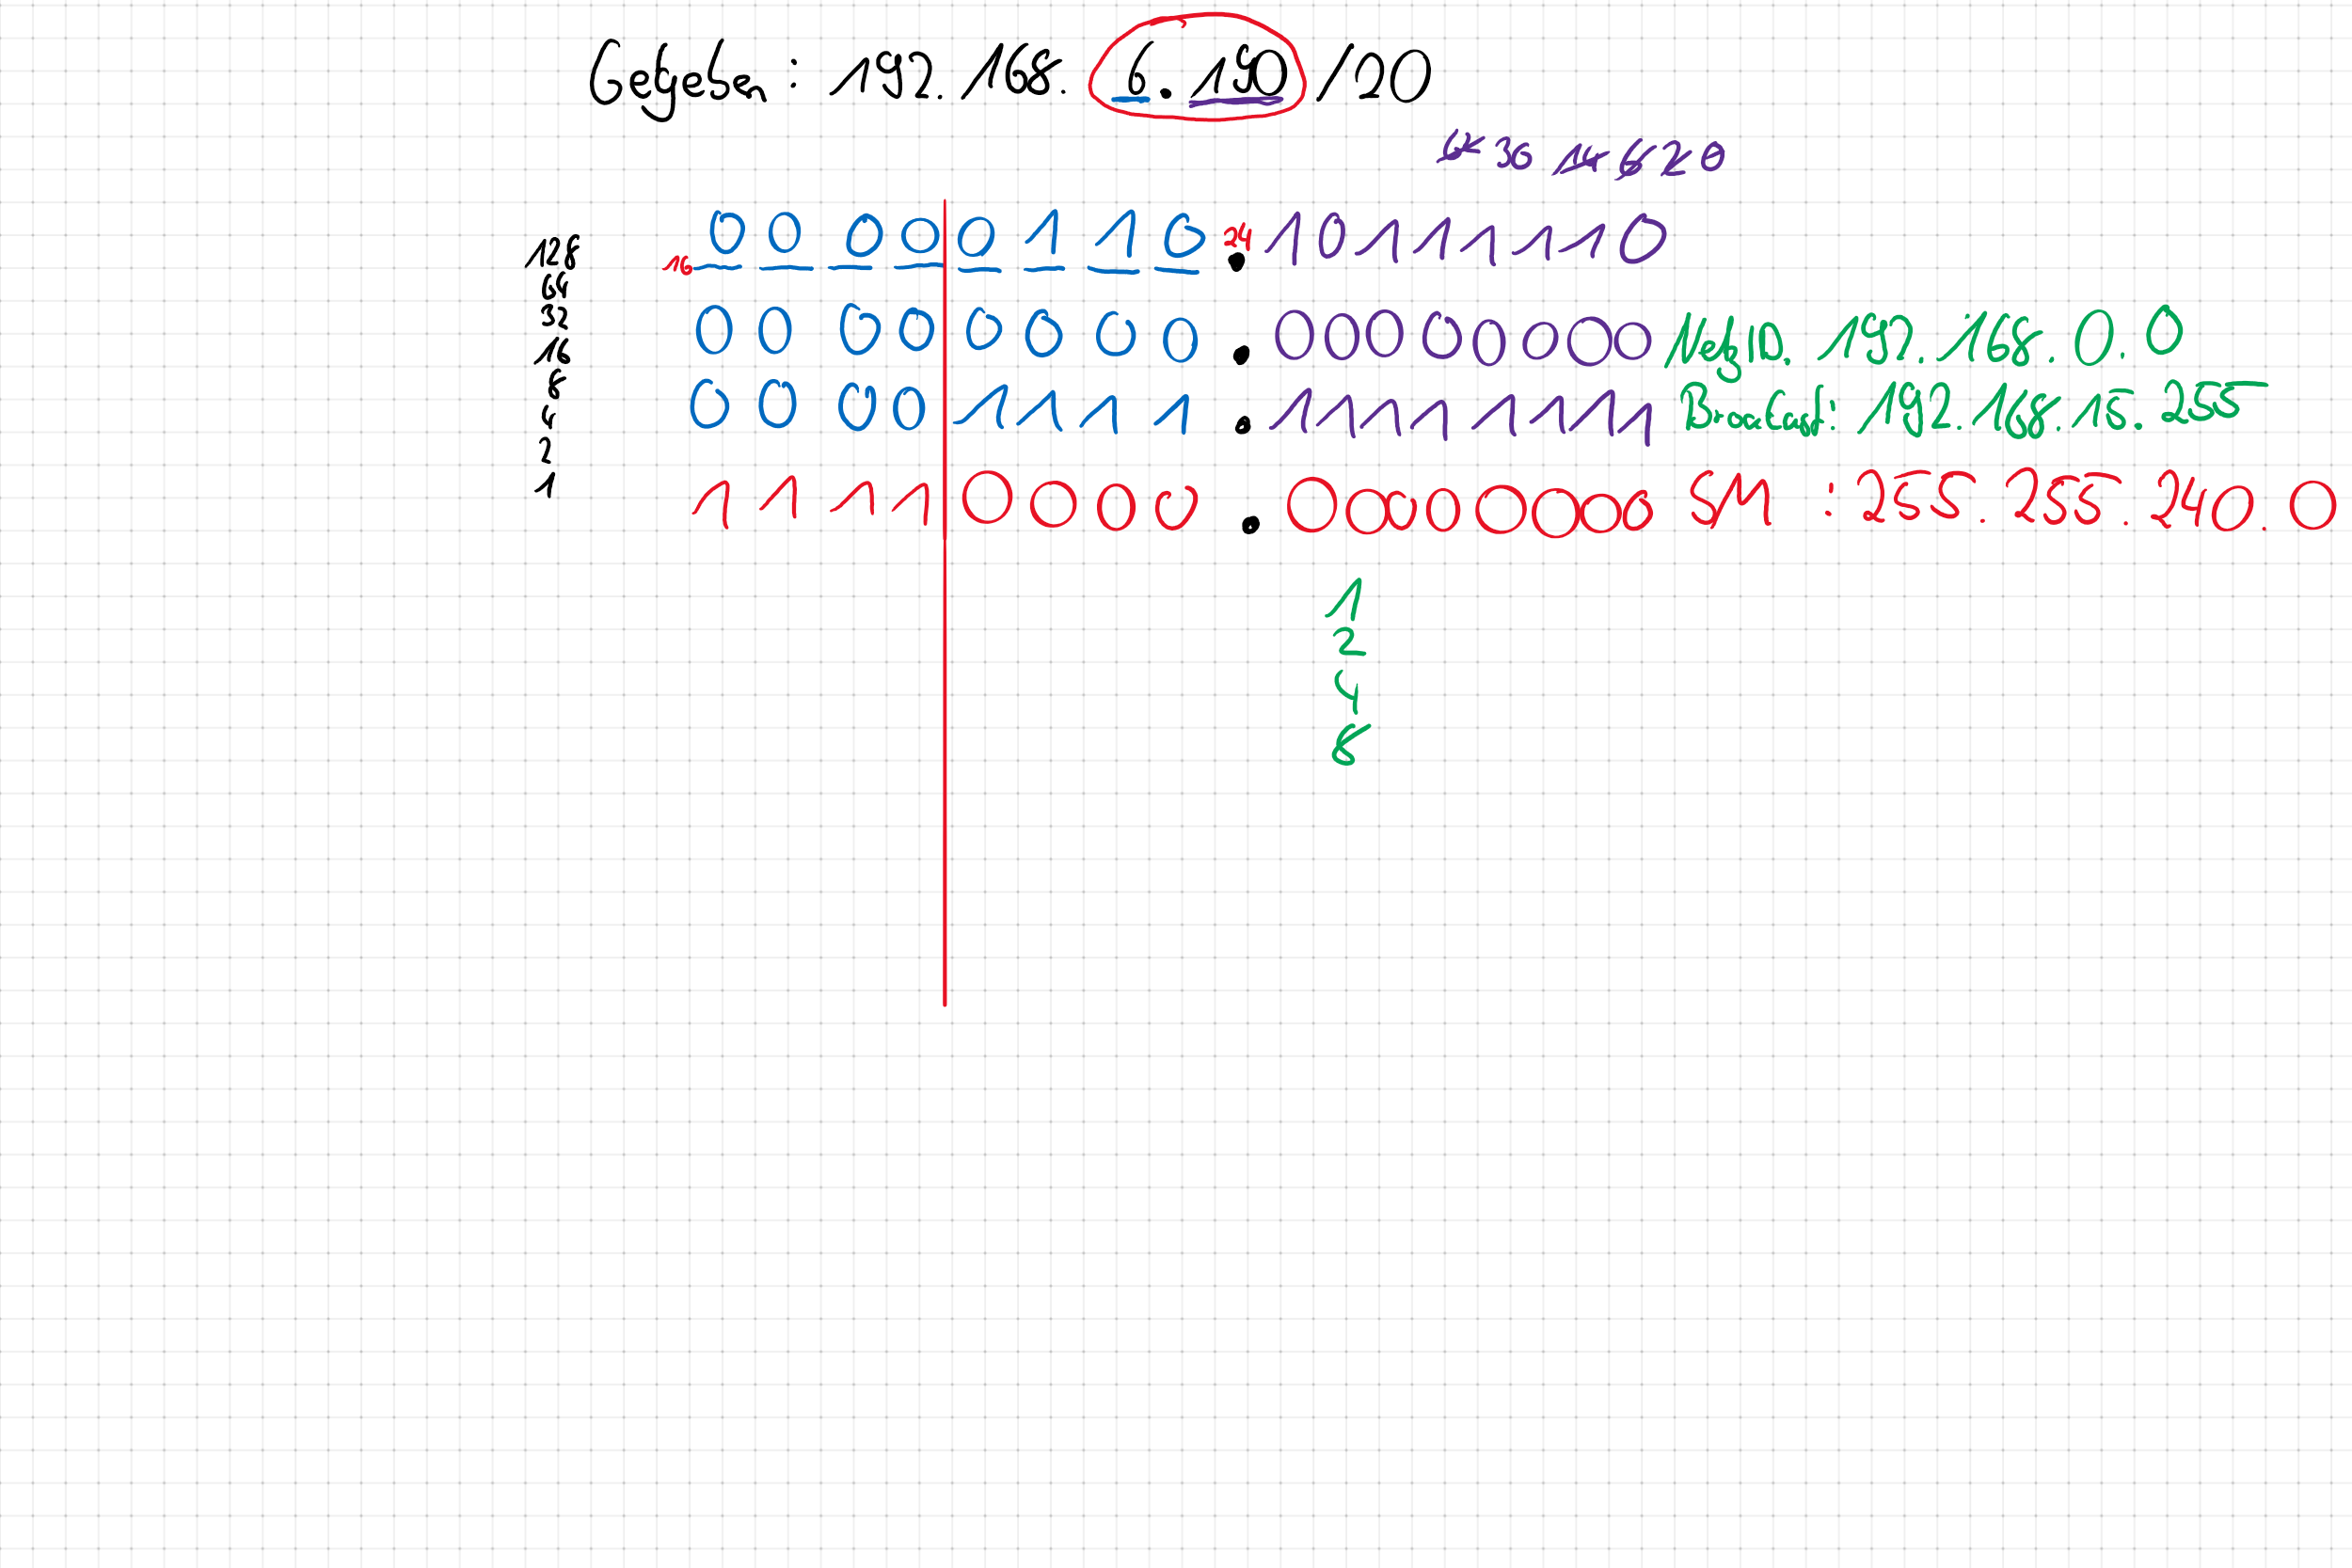 Gegeben: 192.168.6.190/20
30 14 6 2 0
128
64
32
16
8
4
2
1
16 0000 0110 24 . 10111110
00000000 . 00000000 Netz ID. 192.168.0.0
00001111 . 11111111 Broadcast: 192.168.15.255
11110000 . 00000000 SM: 255.255.240.0
1
2
4
8